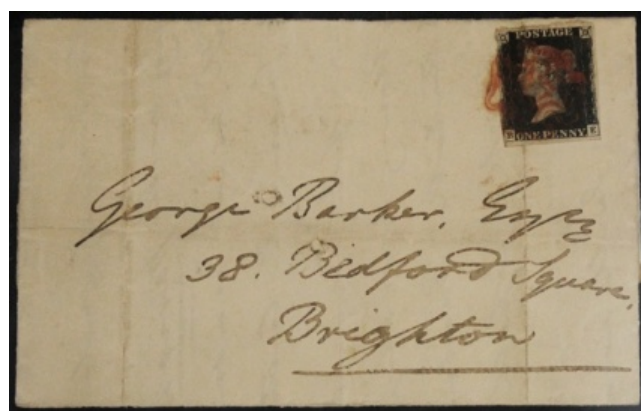 POSTAGE
B E
ONE PENNY
George Barker, Esqre
38. Bedford Square,
Brighton